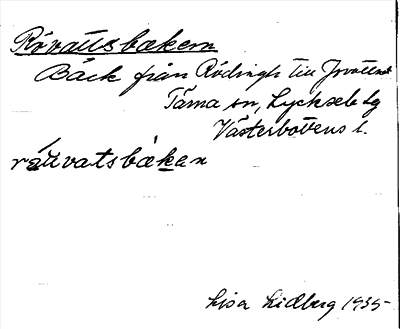 Rövattsbäcken
Bäck från Rödingtj. till Jovattnet
Tärna sn, Lycksele lg
Västerbottens l.
råuvatsbäkan
Lisa Lidberg 1935